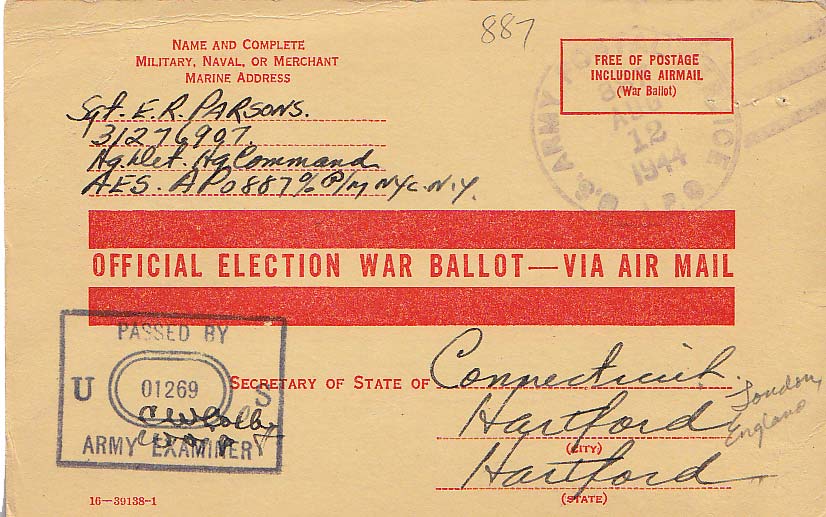 887
NAME AND COMPLETE
MILITARY, NAVAL, OR MERCHANT
MARINE ADDRESS
Sgt. E.R. PARSONS.
31276907.
Hq. Det. Hq Command
AES. APO 887 % P/M NYC. N.Y.
FREE OF POSTAGE
INCLUDING AIRMAIL
(War Ballot)
U.S. ARMY
AUG
12
1944
OFFICIAL ELECTION WAR BALLOT—VIA AIR MAIL
PASSED BY
U 01269 S
ARMY EXAMINER
SECRETARY OF STATE OF Connecticut.
Hartford
(CITY)
Hartford
(STATE)
London,
England
16—39138-1